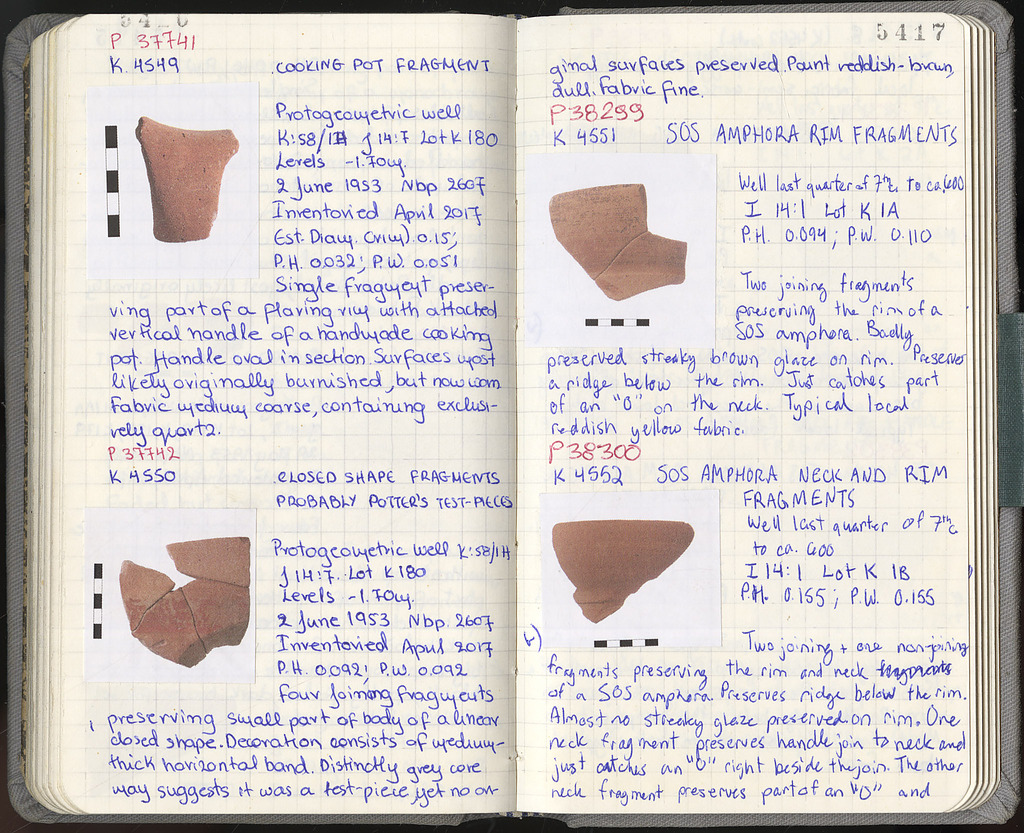 P 37741
K 4549 COOKING POT FRAGMENT
Protogeometric well
K:58/1H J 14:7 Lot K 180
Levels -1.70m.
2 June 1953 Nbp 2607
Inventoried April 2017
Est. Diam. (rim) 0.15;
P.H. 0.032; P.W. 0.051
Single fragment preser-
ving part of a flaring rim with attached
vertical handle of a handmade cooking
pot. Handle oval in section. Surfaces most
likely originally burnished, but now worn
Fabric medium coarse, containing exclusi-
vely quartz.
P 37742
K 4550 CLOSED SHAPE FRAGMENTS
PROBABLY POTTER'S TEST-PIECES
Protogeometric well K:58/1H
J 14:7. Lot K 180
Levels -1.70m.
2 June 1953 Nbp. 2607
Inventoried April 2017
P.H. 0.092; P.W. 0.092
Four joining fragments
preserving small part of body of a linear
closed shape. Decoration consists of medium-
thick horizontal band. Distinctly grey core
may suggests it was a test-piece, yet no ori-
5417
ginal surfaces preserved. Paint reddish-brown,
dull. Fabric fine.
P 38299
K 4551 SOS AMPHORA RIM FRAGMENTS
Well last quarter of 7th c to ca. 600
I 14:1 Lot K 1A
P.H. 0.094; P.W. 0.110
Two joining fragments
preserving the rim of a
SOS amphora. Badly
preserved streaky brown glaze on rim. Preserves
a ridge below the rim. Just catches part
of an "O" on the neck. Typical local
reddish yellow fabric.
P 38300
K 4552 SOS AMPHORA NECK AND RIM
FRAGMENTS
Well last quarter of 7th c
to ca. 600
I 14:1 Lot K 1B
P.H. 0.155; P.W. 0.155
Two joining + one non-joining
fragments preserving the rim and neck fragments
of a SOS amphora. Preserves ridge below the rim.
Almost no streaky glaze preserved on rim. One
neck fragment preserves handle join to neck and
just catches an "O" right beside the join. The other
neck fragment preserves part of an "O" and